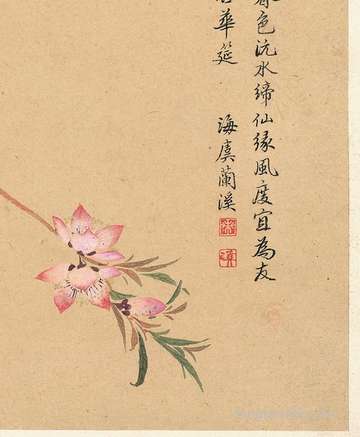 春色沅水締仙緣風度宜為友
華筵
海虞蘭溪